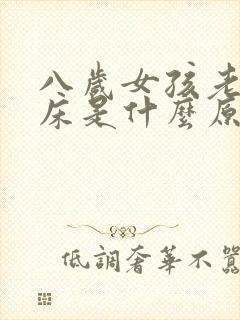 八歲女孩老
床是什麼原
低調奢華不囂